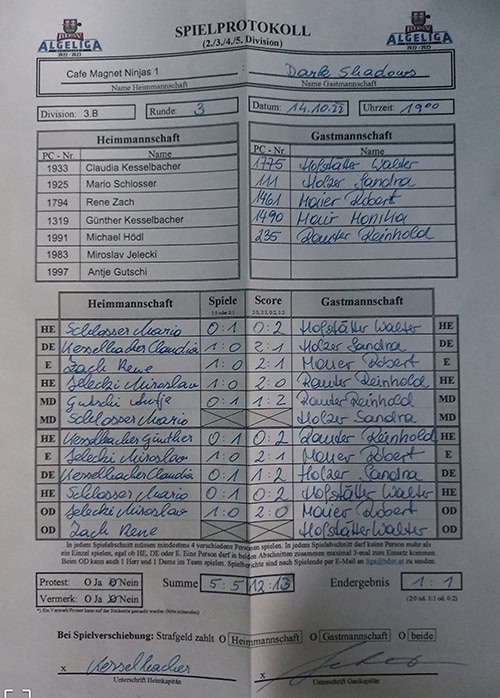 BDSV
ALGELIGA
2022 - 2023
SPIELPROTOKOLL
(2./3./4./5. Division)
BDSV
ALGELIGA
2022 - 2023
Cafe Magnet Ninjas 1 : Dark Shadows
Name Heimmannschaft Name Gastmannschaft
Division: 3.B Runde: 3 Datum: 14.10.22 Uhrzeit: 19 00
Heimmannschaft Gastmannschaft
PC - Nr. Name PC - Nr. Name
1933 Claudia Kesselbacher 1775 Hofstätter Walter
1925 Mario Schlosser 111 Holzer Sandra
1794 Rene Zach 1461 Maier Robert
1319 Günther Kesselbacher 1490 Mair Monika
1991 Michael Hödl 235 Rauter Reinhold
1983 Miroslav Jelecki
1997 Antje Gutschi
Heimmannschaft Spiele Score Gastmannschaft
HE Schlosser Mario 0:1 0:2 Hofstätter Walter HE
DE Kesselbacher Claudia 1:0 2:1 Holzer Sandra DE
E Zach Rene 1:0 2:1 Maier Robert E
HE Jelecki Miroslav 1:0 2:0 Rauter Reinhold HE
MD Gutschi Antje 0:1 1:2 Rauter Reinhold MD
MD Schlosser Mario Holzer Sandra MD
HE Kesselbacher Günther 0:1 0:2 Rauter Reinhold HE
E Jelecki Miroslav 1:0 2:0 Maier Robert E
DE Kesselbacher Claudia 0:1 1:2 Holzer Sandra DE
HE Schlosser Mario 0:1 0:2 Hofstätter Walter HE
OD Jelecki Miroslav 1:0 2:0 Maier Robert OD
OD Zach Rene Hofstätter Walter OD
In jedem Spielabschnitt müssen mindestens 4 verschiedene Personen spielen. In jedem Spielabschnitt darf keine Person mehr als
ein Einzel spielen, egal ob HE, DE oder E. Eine Person darf in beiden Abschnitten zusammen maximal 3-mal zum Einsatz kommen.
Beim OD kann auch 1 Herr und 1 Dame im Team spielen. Spielberichte sind nach Spielende per E-Mail an liga@bdsv.at zu senden.
Protest: O Ja O Nein Summe 5:5 12:13 Endergebnis 1:1
Vermerk: O Ja O Nein (2:0 od. 1:1 od. 0:2)
Bei Spielverschiebung: Strafgeld zahlt O Heimmannschaft O Gastmannschaft O beide
x Kesselbacher x
Unterschrift Heimkapitän Unterschrift Gastkapitän